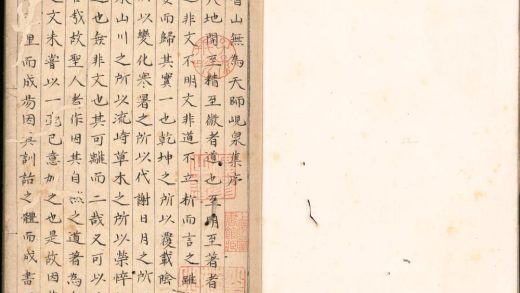 山無為天師峴泉集序
天地間至精至微者道也至明至著者
之非文不明文非道不立析而言之雖
而歸其實一也乾坤之所以覆載陰
所以變化寒暑之所以代謝日月之所
山川之所以流峙草木之所以榮悴
道也莫非文也其可離而二哉又可以
哉故聖人者作因其自然之道著為
之文未嘗以一毫己意加之也是故因
里而成易因其訓詁之體而成書